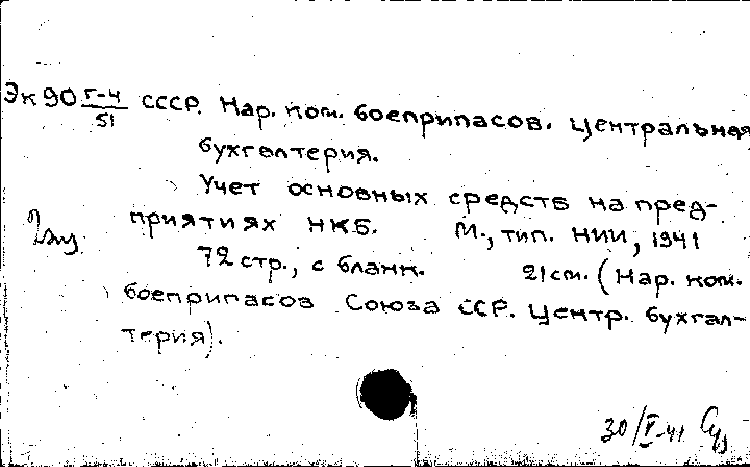 Эк 90 I-4/51 СССР. Нар. ком. боеприпасов. Центральная
бухгалтерия.
Учет основных средств на пред-
приятиях НКБ. М., тип. НИИ, 1941
72 стр., с бланк. 21 см. (Нар. ком.
боеприпасов Союза ССР. Центр. бухгал-
терия).
30/V-41